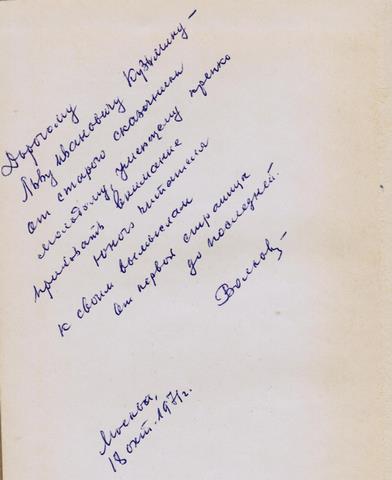 Дорогому
Льву Ивановичу Кузьмину –
от старого сказочника
молодому, умеющему крепко
приковать внимание
юного читателя
к своим вымыслам
от первой страницы
до последней.
Волков –
Москва,
18 окт. 1971г.